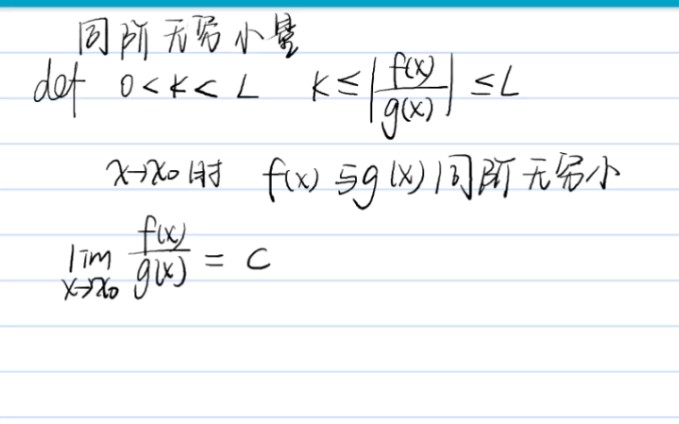 同阶无穷小量
def 0<K<L K≤|f(x)/g(x)|≤L
x→x₀时 f(x)与g(x)同阶无穷小
lim x→x₀ f(x)/g(x) = C